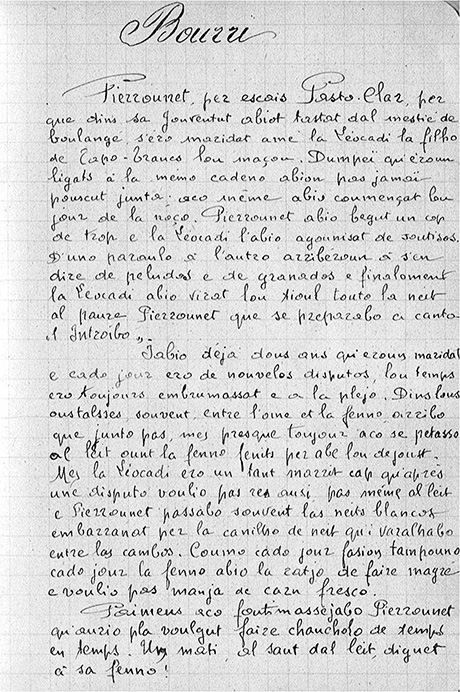 Bourru
Pierrounet, per escais Pasto-Clar, per
que dins sa jouventut abiot tastat dal mestié de
boulangé, s'ero maridat amé la Léocadi la filho
de Capo-Brancs lou maçou. Dumpeï qu'èroun
ligats à la memo cadeno abion pas jamaï
pouscut junta: aco mème abio coumençat lou
jour de la noço. Pierrounet abio begut un cop
de trop e la Léocadi l'abio agounisat de soutisos.
D'uno paraulo à l'autro arribèroun à s'en
dire de peludos e de granados e finaloment
la Léocadi abio virat lou tioul touto la neit
al paure Pierrounet que se preparabo a canta
"l'Introïbo".
Y abio déjà dous ans qu'eroun maridats
e cado jour ero de nouvelos disputos, lou temps
ero toujours embrumassat e a la plejo. Dins lous
oustalsses souvent, entre l'ome et la fenno, arribo
que junto pas, mes presque toujour aco se petasso
al leit ount la fenno fenits per abe lou dejoust.
Mes la Léocadi ero un tant marrit cap qu'après
une disputo voulio pas res ausi, pas mème al leit
e Pierrounet passabo souvent las neits blancos
embarranat per la canilho de neit qu'i varalhabo
entre las cambos. Coumo cado jour fasion tampouno
cado jour la fenno abio la ratjo de faire magré
e voulio pas manja de carn fresco.
Païmens aco foutimassejabo Pierrounet
qu'aurio pla voulgut faire chaucholo de temps
en temps. Un mati, al saut dal leit, diguet
à sa fenno!